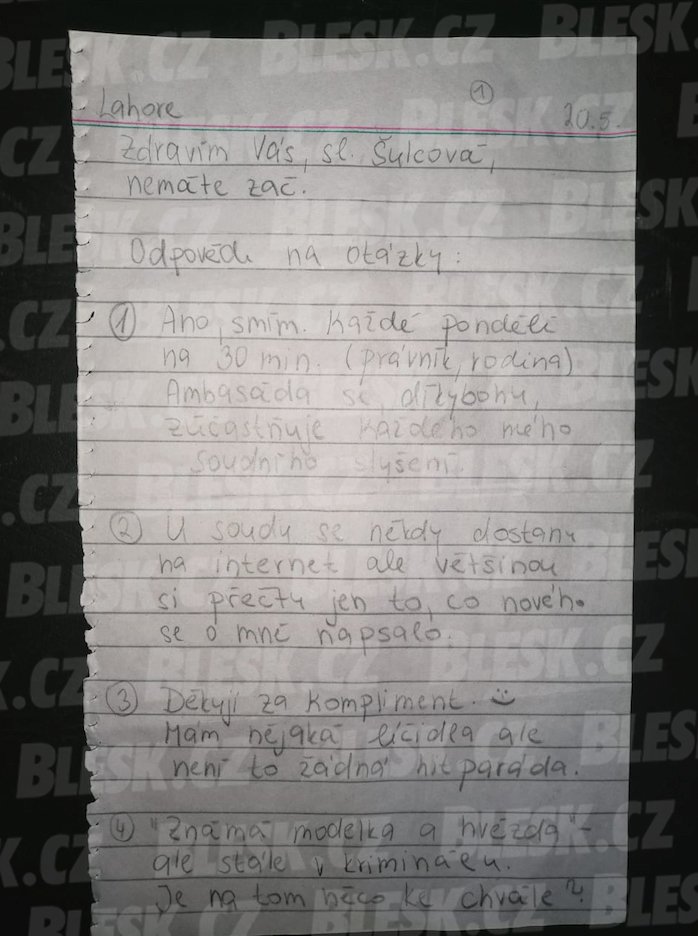 ①
Lahore 20.5.
Zdravím Vás, sl. Šulcová,
nemáte zač.
Odpovědi na otázky:
① Ano, smím. Každé pondělí
na 30 min. (právník, rodina)
Ambasáda se, díkybohu,
zúčastňuje každého mého
soudního slyšení.
② U soudu se někdy dostanu
na internet ale většinou
si přečtu jen to, co nového
se o mně napsalo.
③ Děkuji za kompliment. ☺
Mám nějaká líčidla ale
není to žádná hitparáda.
④ "Známá modelka a hvězda" -
ale stále v kriminálu.
Je na tom něco ke chvále?
BLESK.CZ